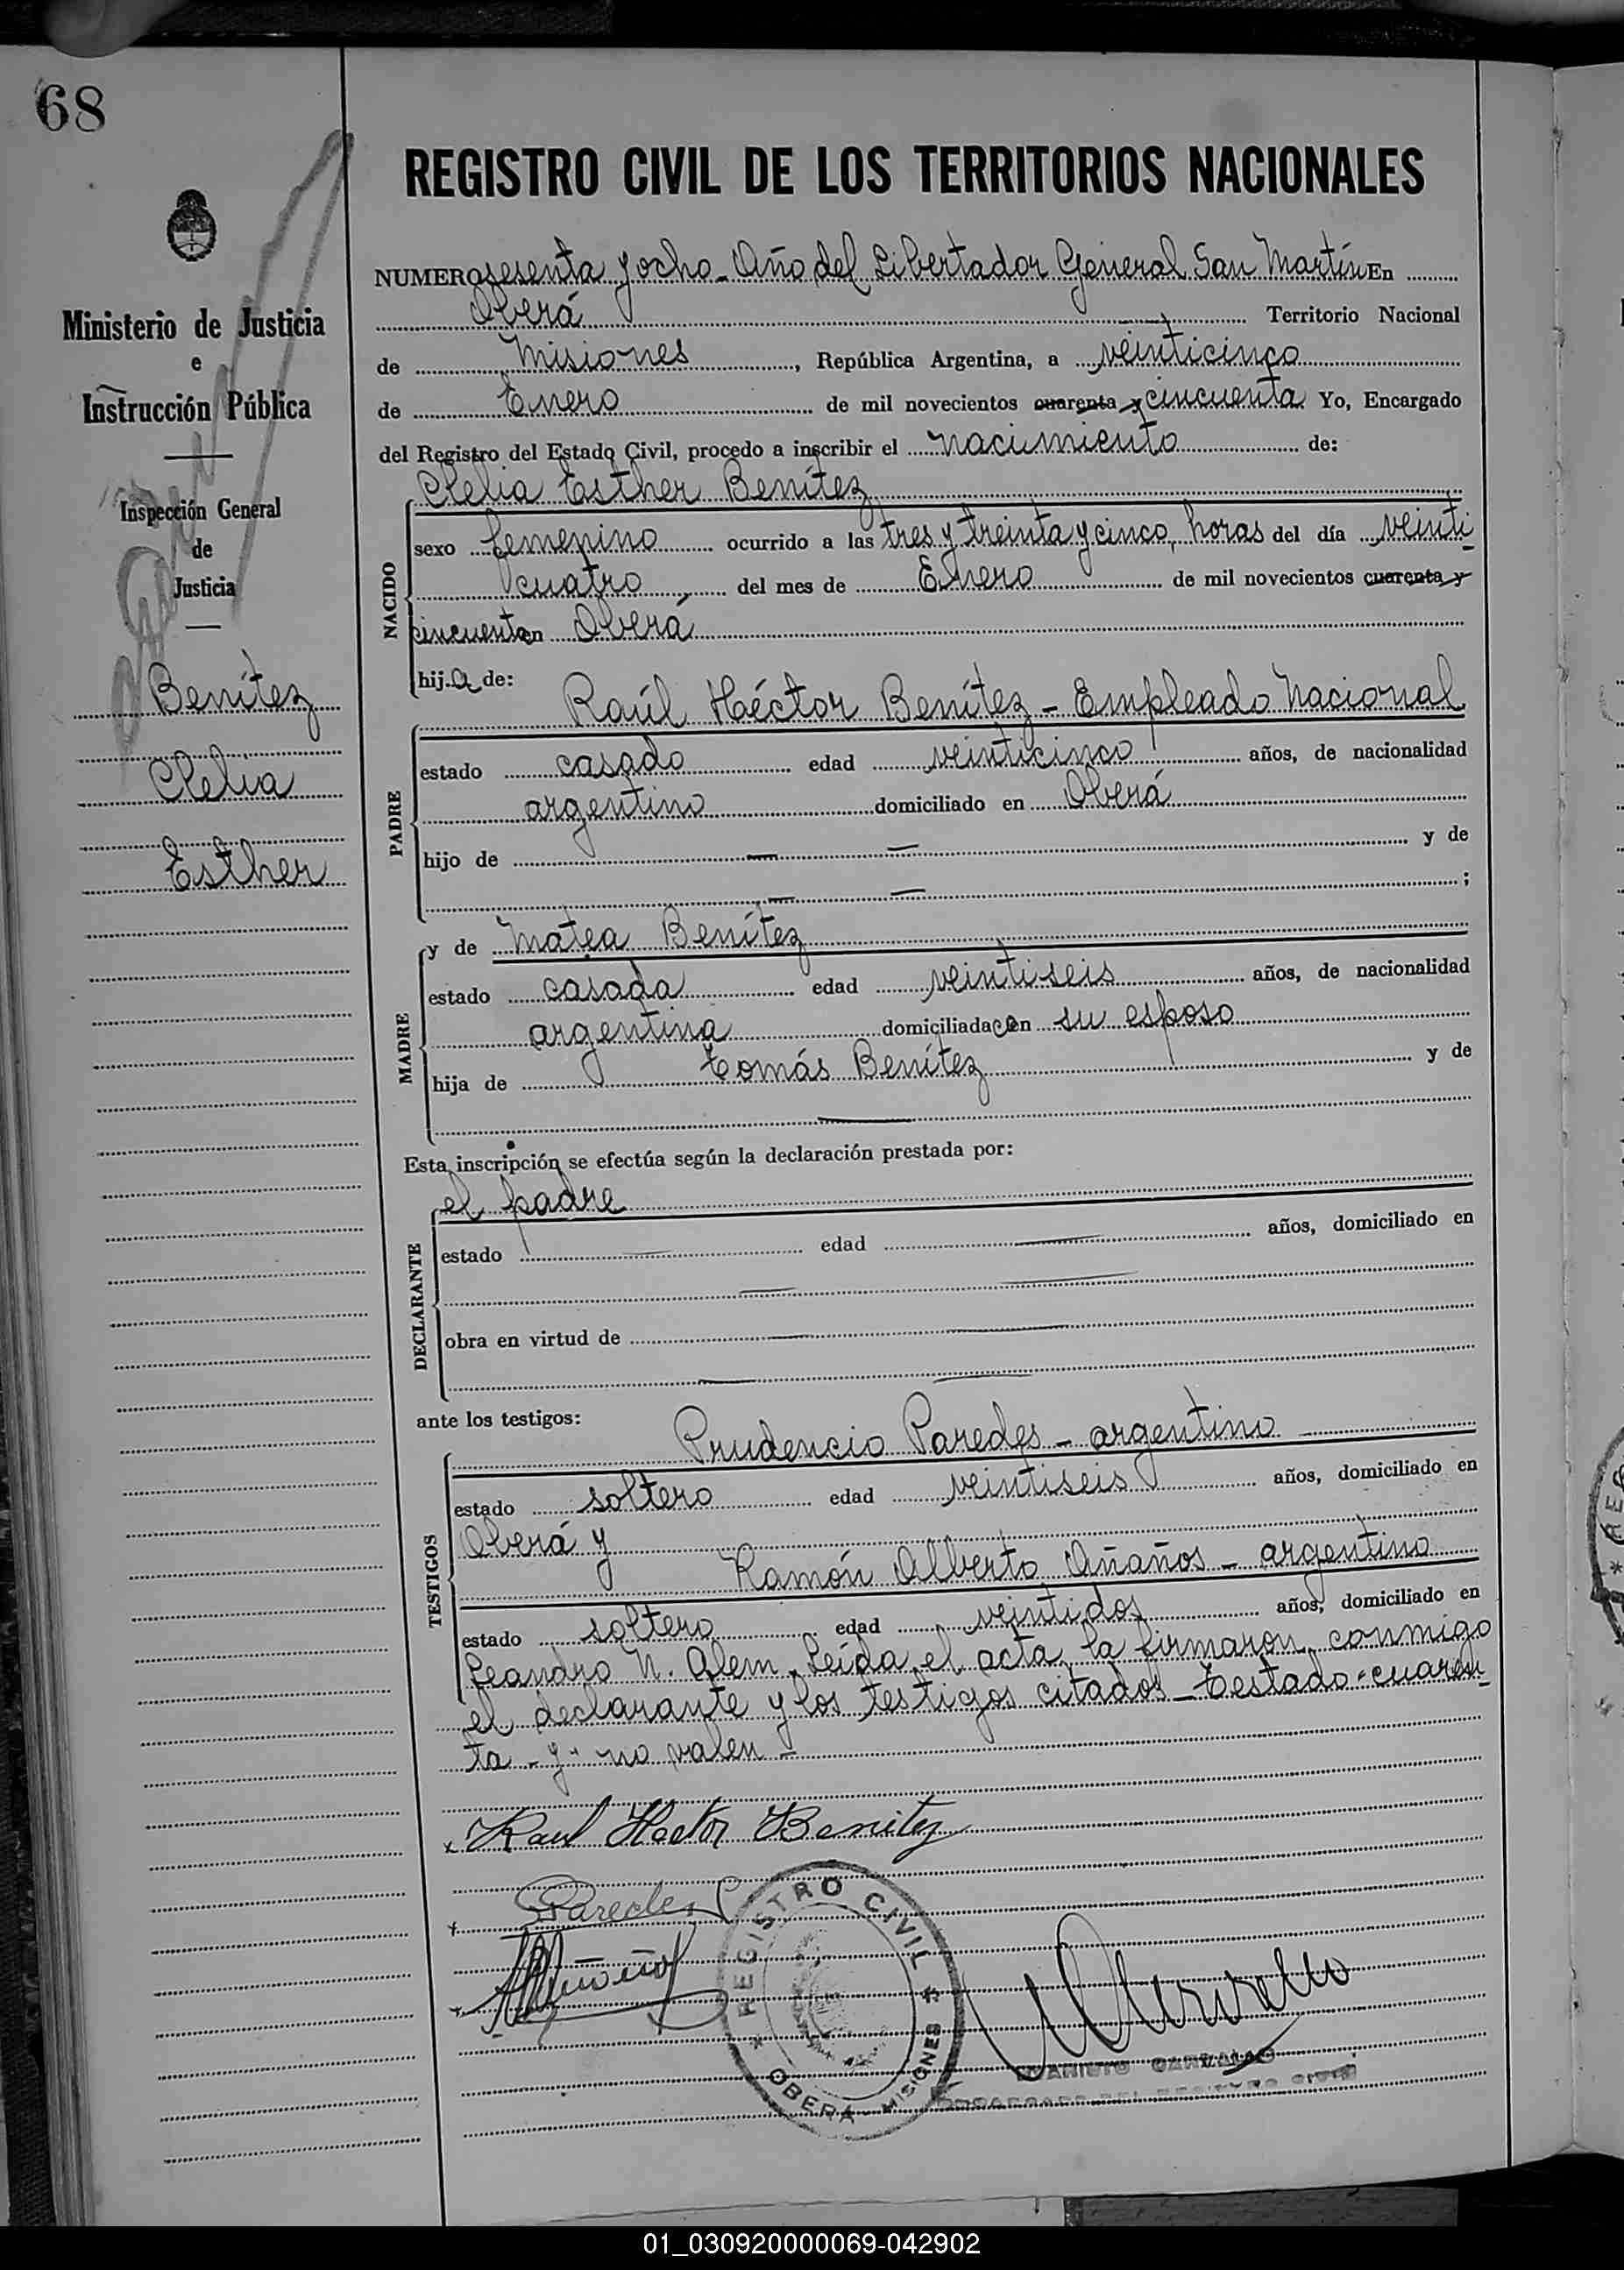 68
REGISTRO CIVIL DE LOS TERRITORIOS NACIONALES
Ministerio de Justicia
e
Instrucción Pública
Inspección General
de
Justicia
Benítez
Clelia
Esther
NUMERO sesenta y ocho - Año del Libertador General San Martín En
Oberá Territorio Nacional
de Misiones, República Argentina, a veinticinco
de Enero de mil novecientos cuarenta y cincuenta Yo, Encargado
del Registro del Estado Civil, procedo a inscribir el nacimiento de:
Clelia Esther Benítez
NACIDO
sexo femenino ocurrido a las tres y treinta y cinco horas del día veinti
cuatro del mes de Enero de mil novecientos cuarenta y
cincuenta en Oberá
hija de:
Raúl Héctor Benítez - Empleado Nacional
PADRE
estado casado edad veinticinco años, de nacionalidad
argentino domiciliado en Oberá
hijo de — — y de
— — ;
MADRE
y de Matea Benítez
estado casada edad veintiseis años, de nacionalidad
argentina domiciliada con su esposo
hija de Tomás Benítez y de
—
Esta inscripción se efectúa según la declaración prestada por:
el padre
DECLARANTE
estado — edad — años, domiciliado en
— —
obra en virtud de — —
— —
ante los testigos:
Prudencio Paredes - argentino
TESTIGOS
estado soltero edad veintiseis años, domiciliado en
Oberá y
Ramón Alberto Añaños - argentino
estado soltero edad veintidos años, domiciliado en
Leandro N. Alem. Leída el acta, la firmaron conmigo
el declarante y los testigos citados - Testado: cuaren-
ta - y - no valen -
x Raul Hector Benitez
x Paredes P
x
REGISTRO CIVIL
OBERÁ - MISIONES
CARVALLO
ENCARGADO DEL REGISTRO CIVIL
01_030920000069-042902